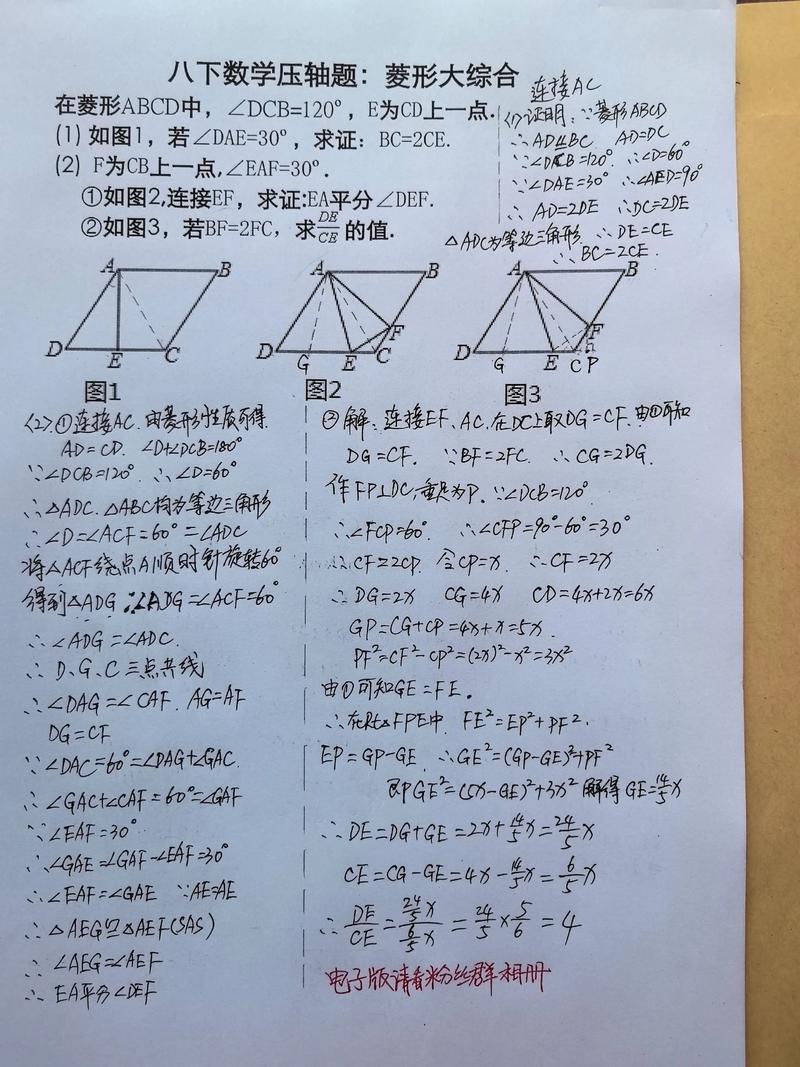 八下数学压轴题：菱形大综合
在菱形ABCD中，∠DCB=120°，E为CD上一点.
(1) 如图1，若∠DAE=30°，求证：BC=2CE.
(2) F为CB上一点,∠EAF=30°.
①如图2,连接EF，求证:EA平分∠DEF.
②如图3，若BF=2FC，求DE/CE的值.
连接AC
(1)证明：∵菱形ABCD
∴AD⫽BC AD=DC
∵∠DCB=120° ∴∠D=60°
∵∠DAE=30° ∴∠AED=90°
∴AD=2DE ∴DC=2DE
△ADC为等边三角形 ∴DE=CE
∴BC=2CE.
A B D E C
A B F D G E C
A B F D G E C P
图1
图2
图3
(2)①连接AC.由菱形性质可得.
AD=CD. ∠D+∠DCB=180°
∵∠DCB=120° ∴∠D=60°
∴△ADC.△ABC均为等边三角形
∴∠D=∠ACF=60°=∠ADC
将△ACF绕点A顺时针旋转60°
得到△ADG ∴∠ADG=∠ACF=60°
∴∠ADG=∠ADC.
∴D、G、C三点共线
∴∠DAG=∠CAF. AG=AF
DG=CF
∵∠DAC=60°=∠DAG+∠GAC.
∴∠GAC+∠CAF=60°=∠GAF
∵∠EAF=30°
∴∠GAE=∠GAF-∠EAF=30°
∴∠EAF=∠GAE ∵AE=AE
∴△AEG≌△AEF(SAS)
∴∠AEG=∠AEF
∴EA平分∠DEF
②解：连接EF、AC.在DC上取DG=CF.由①可知
DG=CF. ∵BF=2FC. ∴CG=2DG.
作FP⊥DC,垂足为P. ∵∠DCB=120°
∴∠FCP=60°. ∴∠CFP=90°-60°=30°
∴CF=2CP. 令CP=x. ∴CF=2x
∴DG=2x CG=4x CD=4x+2x=6x
GP=CG+CP=4x+x=5x.
PF²=CF²-CP²=(2x)²-x²=3x²
由①可知GE=FE.
∴在Rt△FPE中. FE²=EP²+PF².
EP=GP-GE. ∴GE²=(GP-GE)²+PF²
即GE²=(5x-GE)²+3x² 解得GE=14/5x
∴DE=DG+GE=2x+14/5x=24/5x
CE=CG-GE=4x-14/5x=6/5x
∴DE/CE=24/5x/6/5x=24/5×5/6=4
电子版请看粉丝群相册